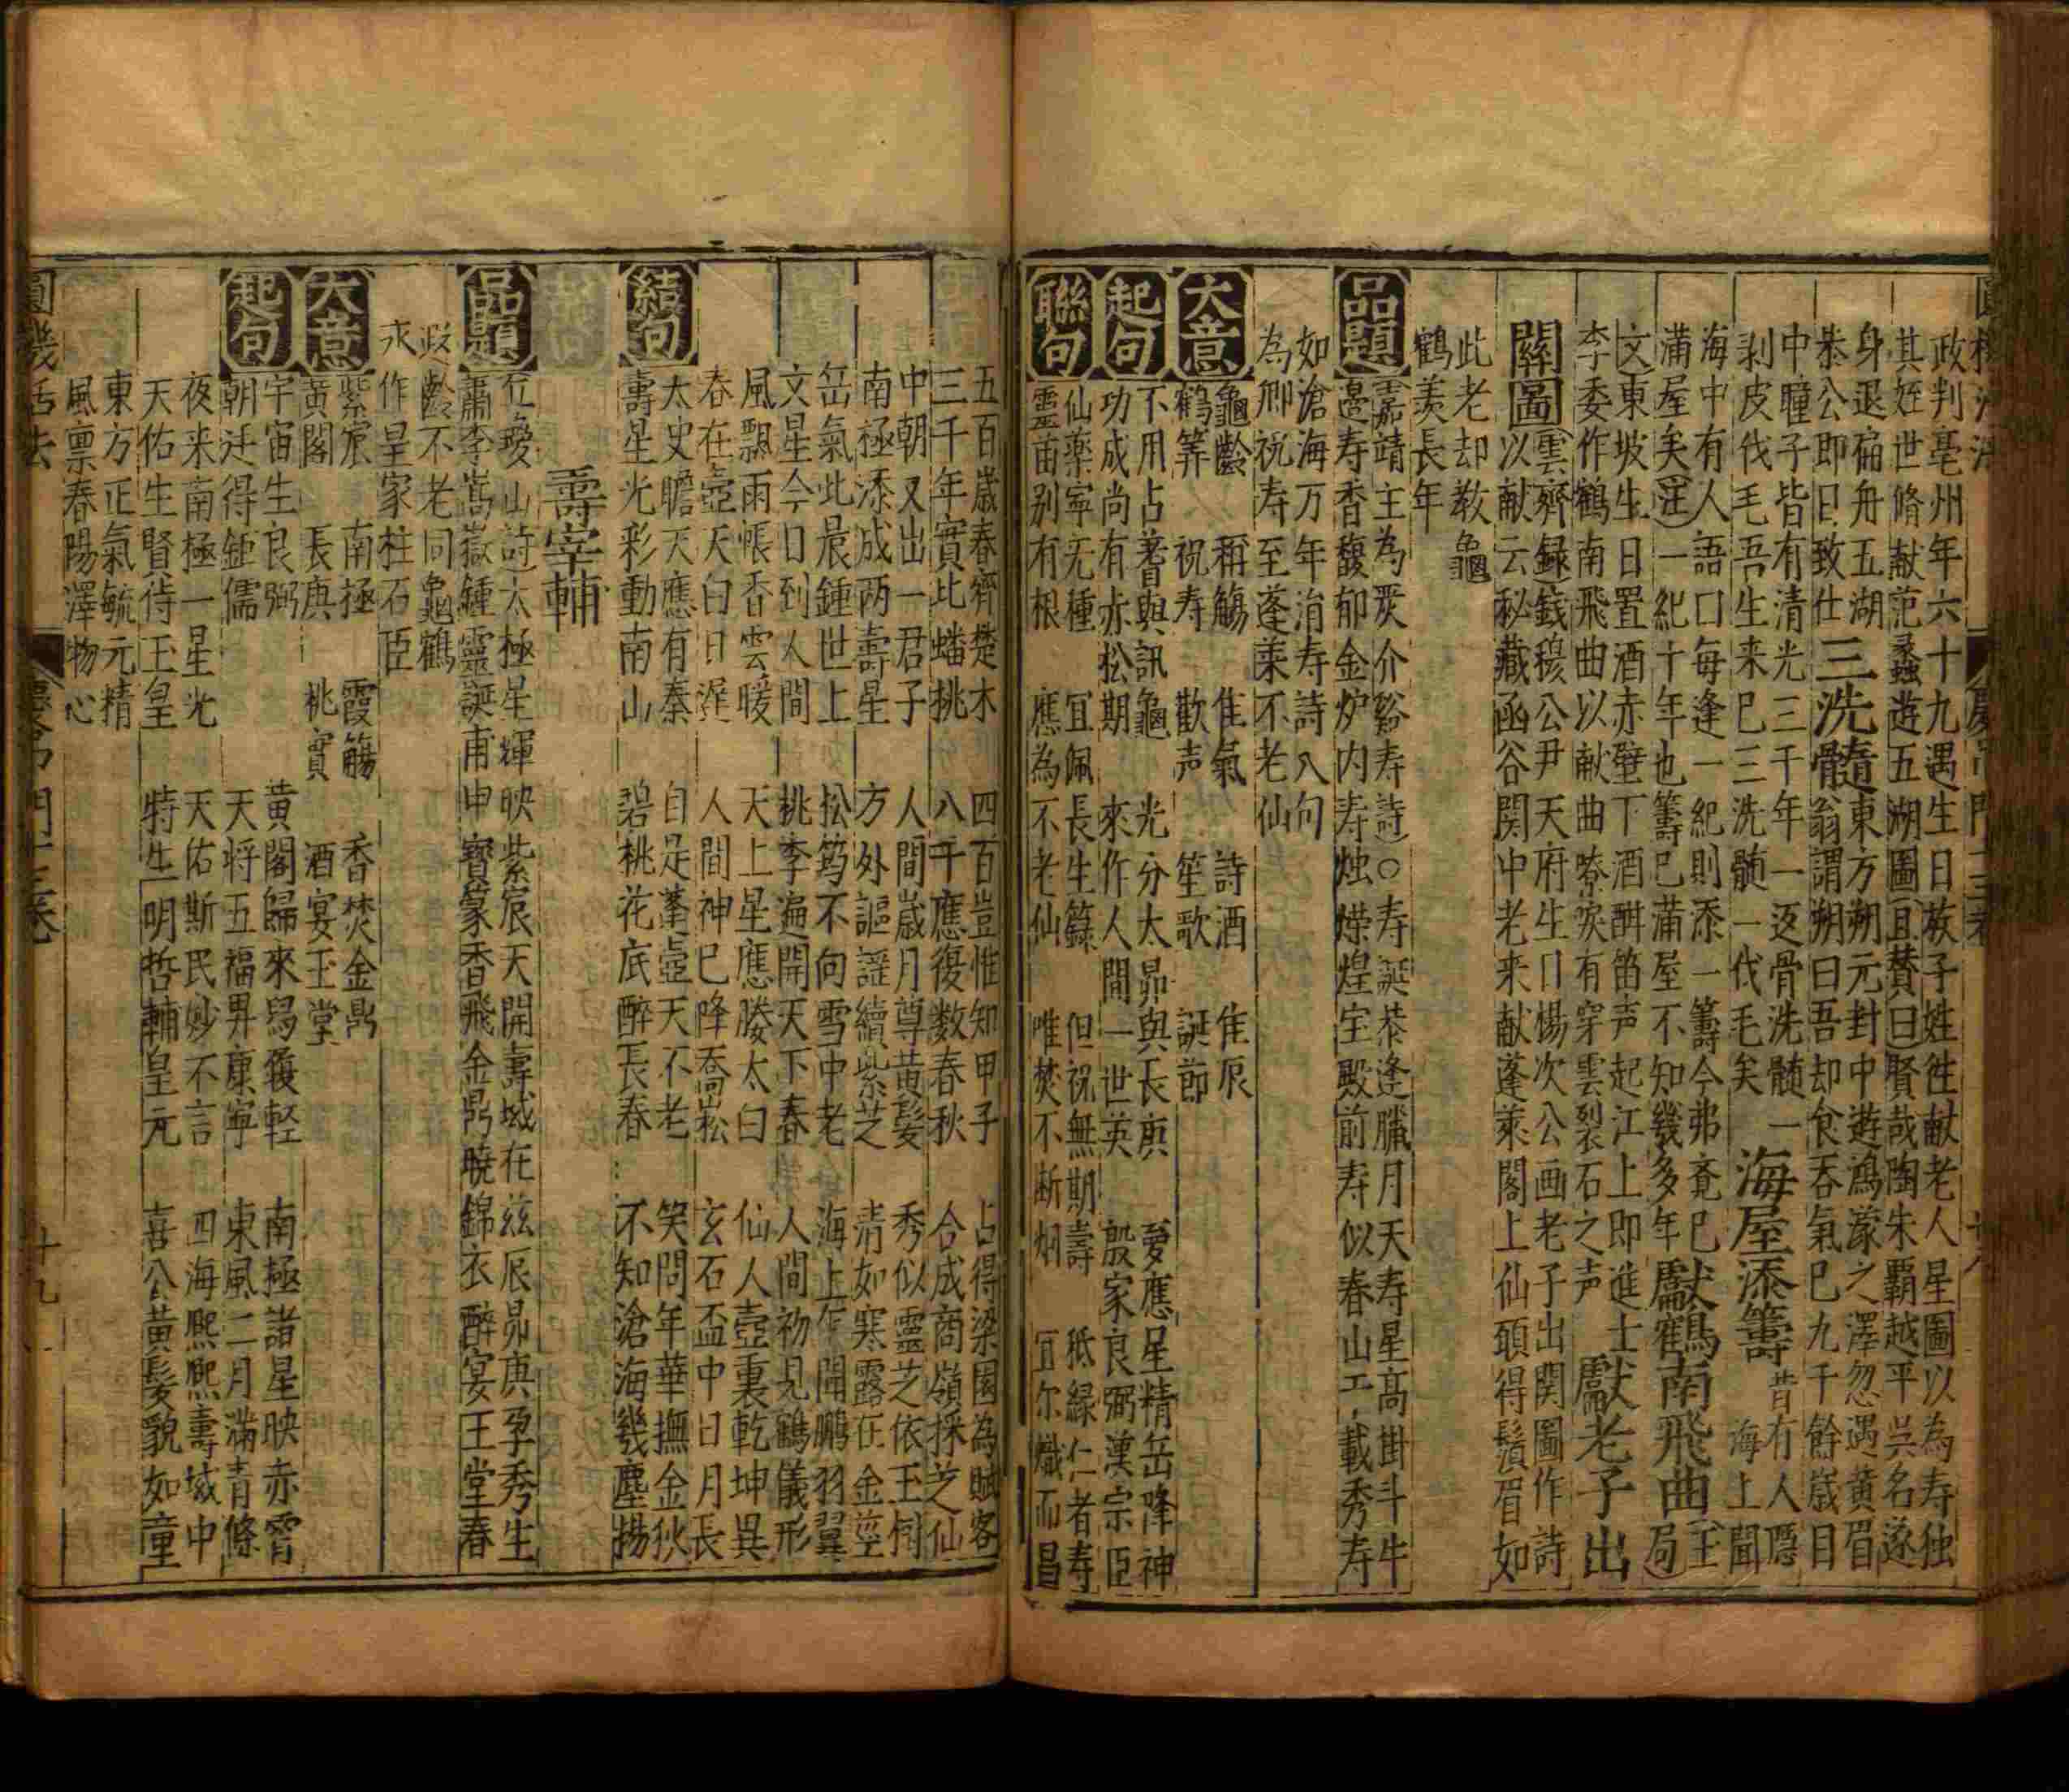 政判亳州年六十九遇生日族子姓徃献老人星圖以為寿独
其姪世脩献范蠡遊五湖圖且賛曰賢哉陶朱覇越平吳名遂
身退扁舟五湖
三洗髓
東方朔元封中遊鴻濛之澤忽遇黄眉
翁謂朔曰吾却食吞氣已九千餘歳目
中瞳子皆有清光三千年一返骨洗髄一
剥皮伐毛吾生来已三洗髄一伐毛矣
海屋添籌
昔有人隱
海上聞
海中有人語口每逢一紀則添一籌今弗竟已
蒲屋矣注一紀十年也籌已蒲屋不知幾多年
獻鶴南飛曲
王
局
文東坡生日置酒赤壁下酒酣笛声起江上即進士
李委作鶴南飛曲以献曲嘹淚有穿雲裂石之声
獻老子出
關圖
雲齊録錢穆公尹天府生日楊次公画老子出関圖作詩
以献云秘藏函谷関中老来献蓬萊閣上仙頭得鬚眉如
此老却教龜
鶴羡長年
品題
嘉靖主為炭介谿寿詩○寿誕恭逢臘月天寿星高掛斗牛
邉寿香馥郁金炉内寿烛煠煌宝殿前寿似春山工載秀寿
如滄海万年涓寿詩入句
為卿祝寿至蓬萊不老仙
大意
龜齡 稱觴 隹氣 詩酒 隹辰
鶴筭 祝寿 歡声 笙歌 誕節
起句
不用占蓍與訊龜 光分太昴與長庚 夐應星精岳降神
功成尚有赤松期 來作人間一世英 殷家良弼漢宗臣
聯句
仙藥寧无種 冝佩長生籙 但祝無期壽 秪緑仁者寿
靈苗别有根 應為不老仙 唯焚不断烟 冝尔熾而昌
五百歳春齊楚木 四百豈惟知甲子 占得梁園為賦客
三千年實比蟠桃 八千應復数春秋 合成商嶺採芝仙
中朝又出一君子 人間歳月尊黄髪 秀似靈芝依玉砌
南極添成两壽星 方外謳謡續紫芝 清如寒露在金莖
岳氣此晨鍾世上 松筠不向雪中老 海上乍聞鵬羽翼
文星今日到人間 桃李遍開天下春 人間初見鶴儀形
風飄雨帳香雲暖 天上星應縢太白 仙人壺裏乾坤異
春在壺天白日遅 人間神已降喬崧 玄石盃中日月長
結句
太史瞻天應有奏 自是蓬壺天不老 笑問年華撫金狄
壽星光彩動南山 碧桃花底醉長春 不知滄海幾塵揚
壽宰輔
品題
㐲璦山詩太極星輝映紫宸天開壽域在兹辰昴庚孕秀生
蕭李嵩嶽鍾靈誕甫申寳篆香飛金鼎暁錦衣醉宴玉堂春
遐齡不老同龜鶴
永作皇家柱石臣
大意
紫宸 南極 霞觴 香焚金鼎
黄閣 長庚 桃實 酒宴玉堂
起句
宇宙生良弼 黄閣歸來舄履軽 南極諸星映赤霄
朝廷得鉅儒 天将五福畀康寧 東風二月滿青條
夜来南極一星光 天佑斯民妙不言 四海熈熈壽域中
天佑生賢待玉皇 特生明哲輔皇元 喜公黄髪貌如童
東方正氣毓元精
風禀春陽澤物心
圓機活法
慶弔門十三卷
十九